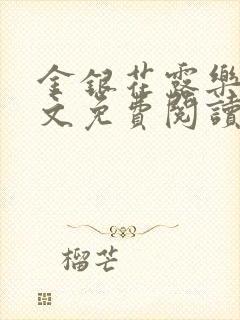 金銀花露樂
文免費閱讀
榴芒